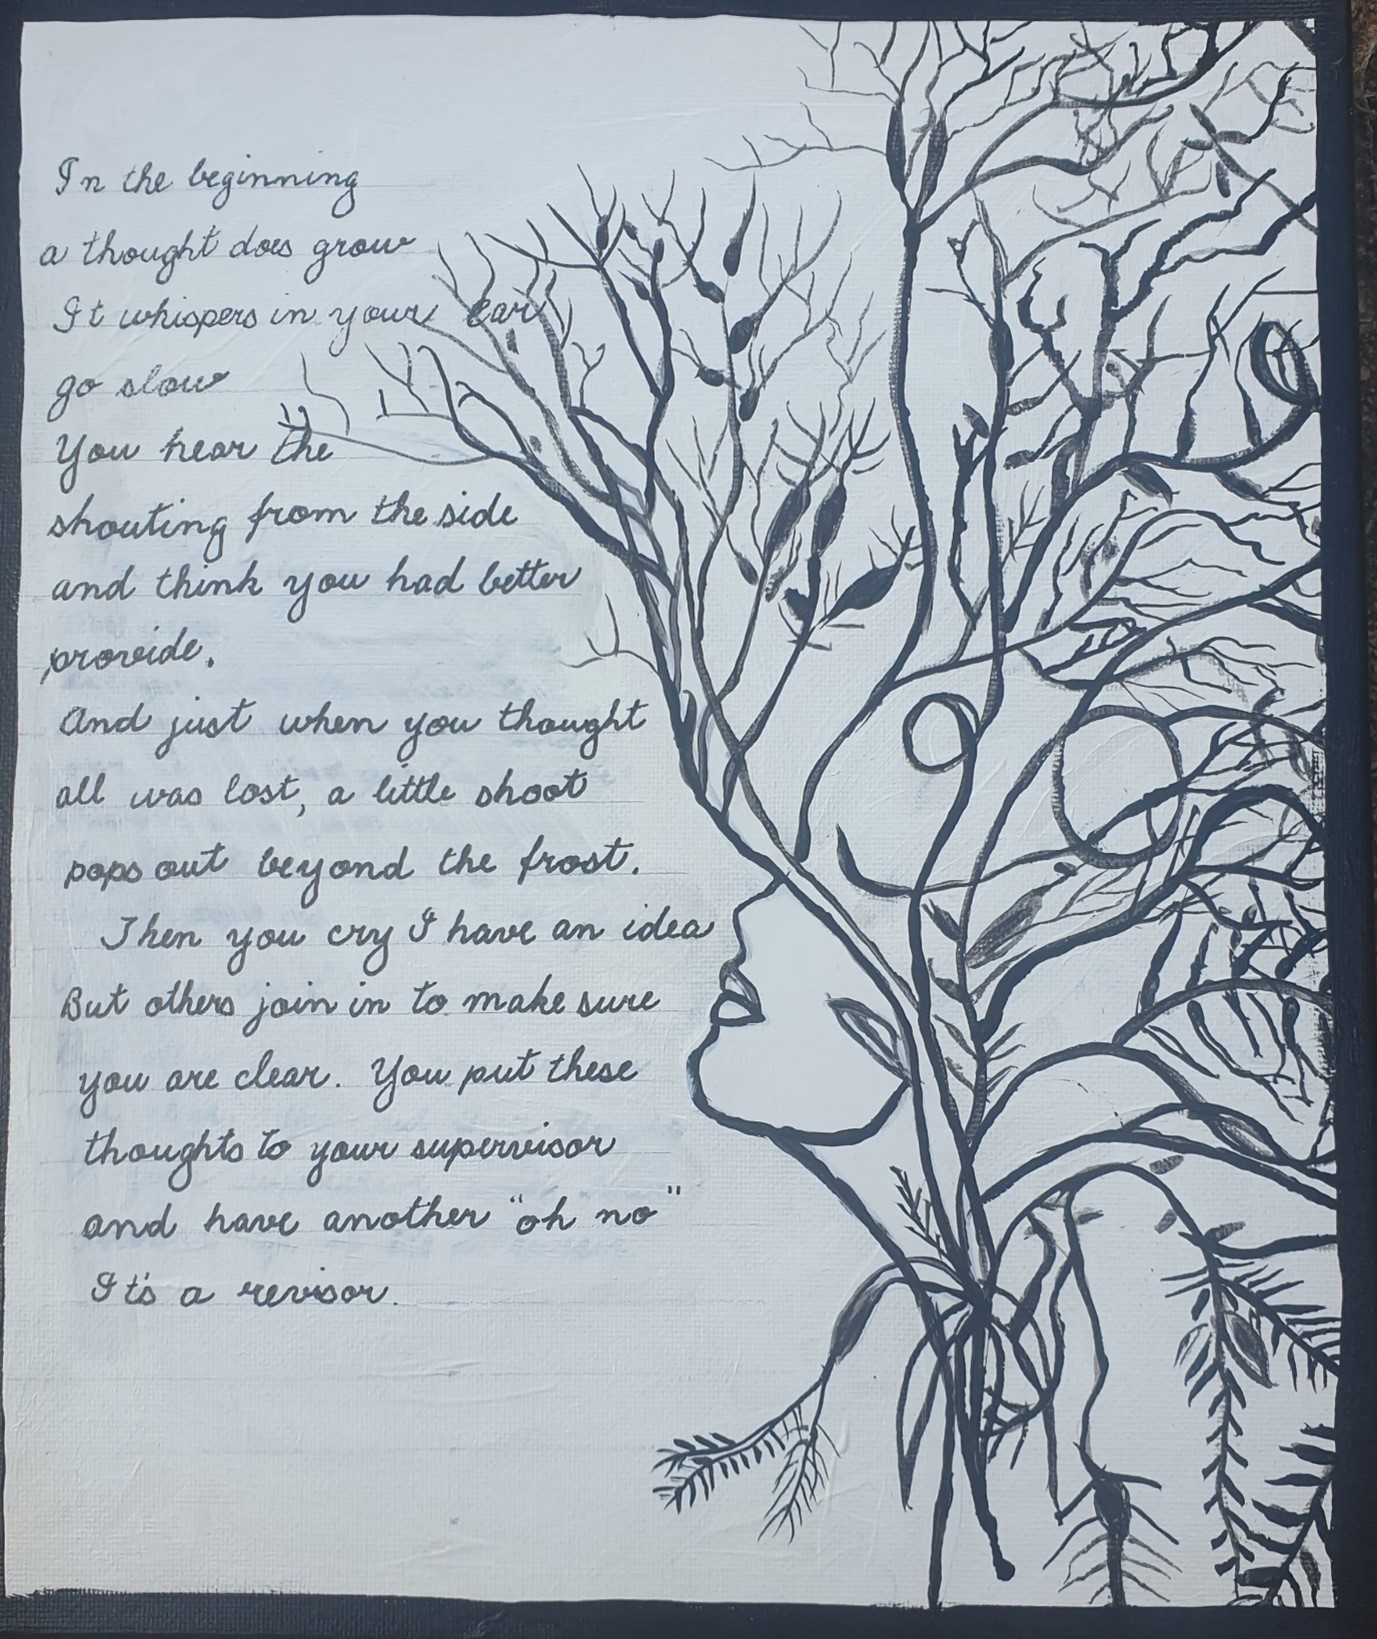 In the beginning
a thought does grow
It whispers in your ear
go slow
You hear the
shouting from the side
and think you had better
provide.
And just when you thought
all was lost, a little shoot
pops out beyond the frost.
Then you cry I have an idea
But others join in to make sure
you are clear. You put these
thoughts to your supervisor
and have another "oh no"
It's a revisor.